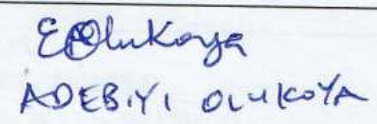 EOlukoya
ADEBIYI OLUKOYA